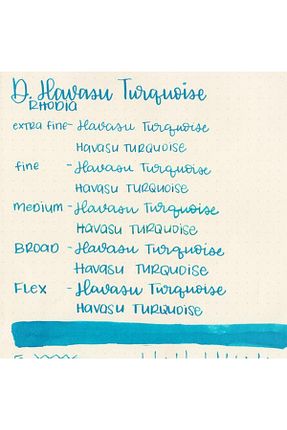 D. Havasu Turquoise
RHODIA
extra fine - Havasu Turquoise
Havasu Turquoise
fine - Havasu Turquoise
Havasu Turquoise
medium - Havasu Turquoise
Havasu Turquoise
BROAD - Havasu Turquoise
Havasu Turquoise
FLEX - Havasu Turquoise
Havasu Turquoise